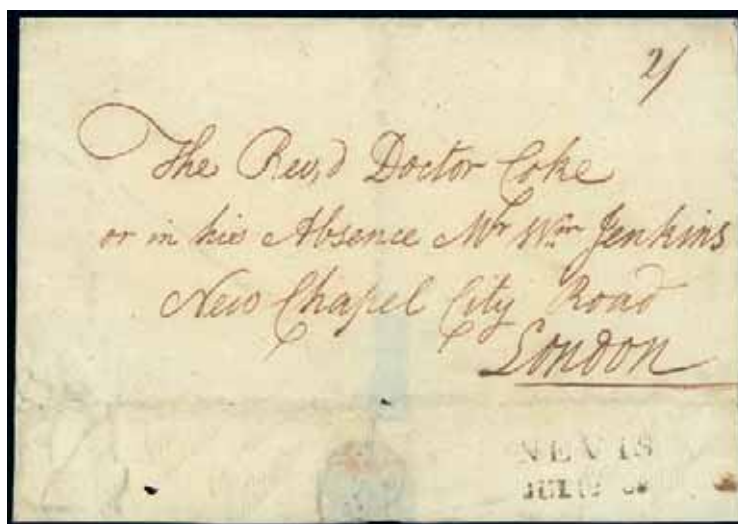 2/
The Rev,d Doctor Coke
or in his Absence Mr Wm Jenkins
New Chapel City Road
London
NEVIS